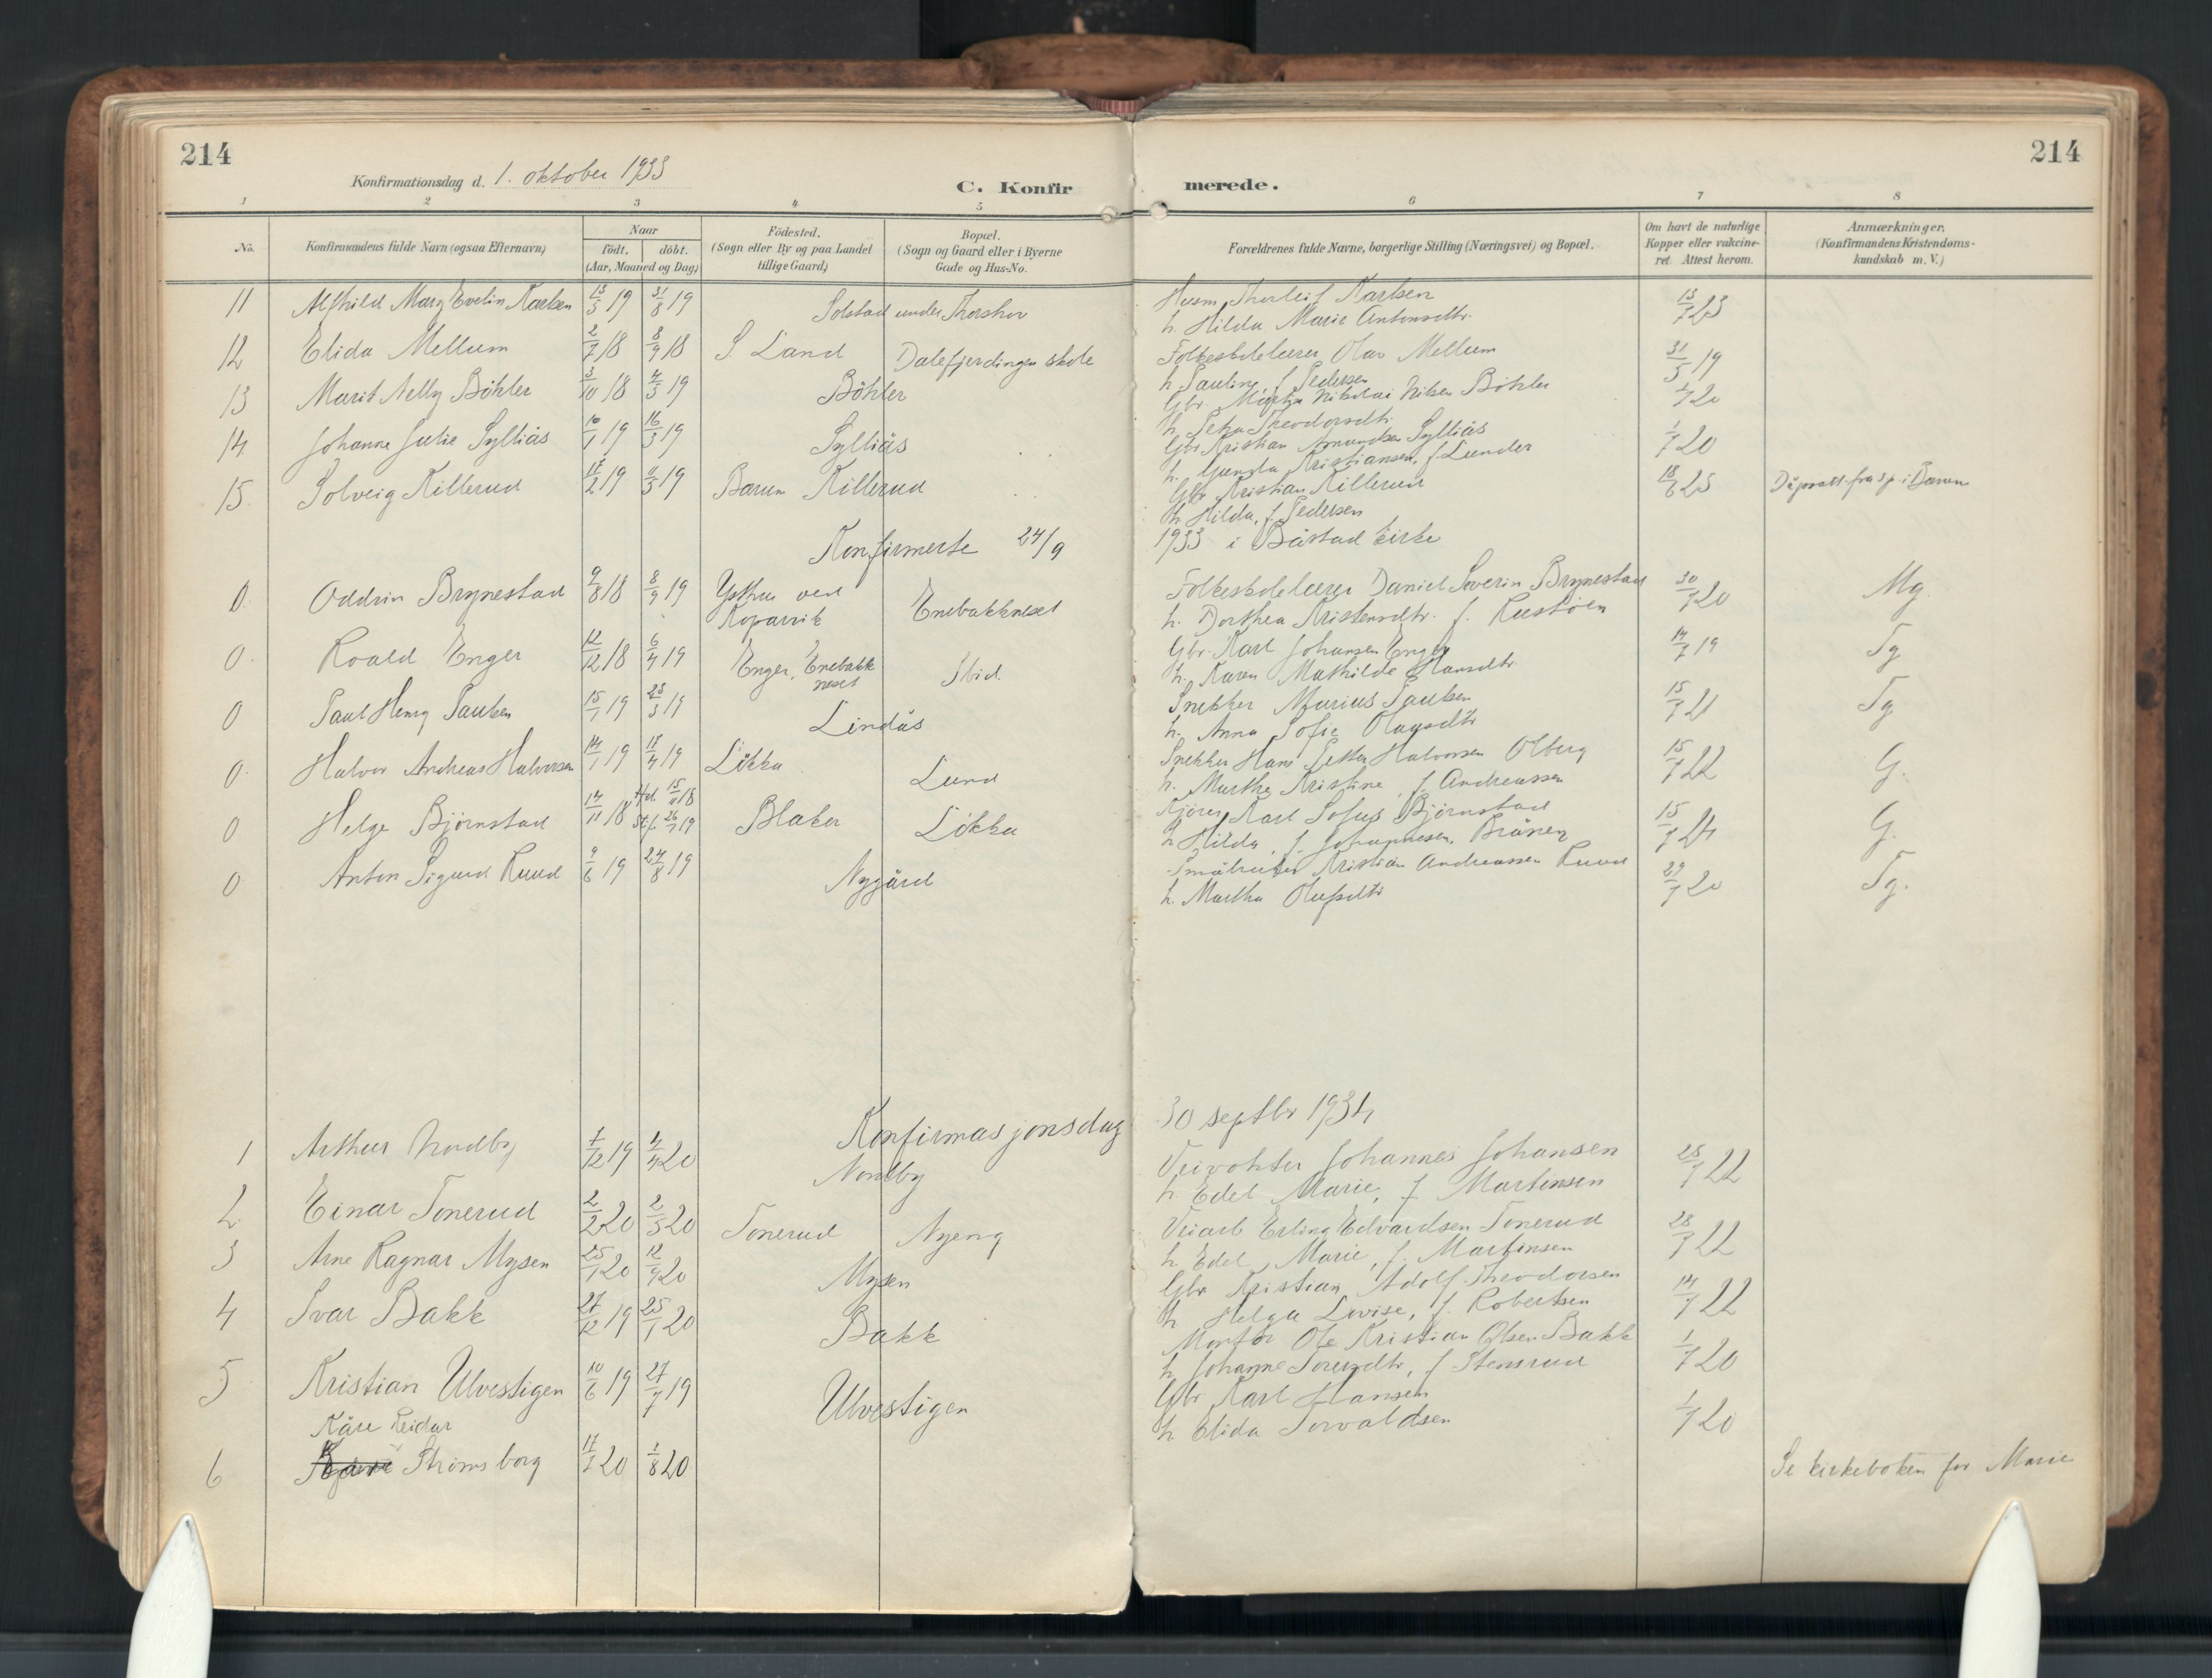 214
214
Konfirmationsdag d. 1. oktober 1933
C. Konfirmerede.
1 2 3 4 5 6 7 8
No. Konfirmandens fulde Navn (ogsaa Efternavn) Naar født. døbt. (Aar, Maaned og Dag) Fødested. (Sogn eller By og paa Landet tillige Gaard) Bopæl. (Sogn og Gaard eller i Byerne Gade og Hus-No. Forældrenes fulde Navne, borgerlige Stilling (Næringsvei) og Bopæl. Om havt de naturlige Kopper eller vakcineret. Attest herom. Anmærkninger. (Konfirmandens Kristendomskundskab m. V.)
11 Alfhild Mary Evelin Karlsen 13/5 19 31/8 19 Solstad under Thorshov Husm Thorleif Karlsen 13/7 23
h. Hilda Marie Antonsdtr.
12 Elida Mellum 2/7 18 8/9 18 S. Land Dalefjerdingen skole Folkeskolelærer Olav Mellum 31/5 19
h. Pauline, f. Pedersen
13 Marit Nelly Böhler 3/10 18 4/5 19 Böhler Gbr. Martin Nikolai Nilsen Böhler 1/7 20
h. Petra Theodorsdtr.
14 Johanne Julie Sylliås 10/1 19 16/3 19 Sylliås Gbr Kristian Amundsen Sylliås 1/7 20
h. Gunda Kristiansen, f Lunder
15 Solveig Killerud 12/2 19 11/5 19 Bærum Killerud Gbr Kristian Killerud 18/6 25 Dåpsatt. fra sp. i Bærum
h Hilda, f. Pedersen
Konfirmerte 24/9 1933 i Båstad kirke
0 Oddrin Brynestad 9/8 18 8/9 19 Ysthus ved Koparvik Enebakkneset Folkeskolelærer Daniel Severin Brynestad 30/7 20 Mg.
h. Dorthea Kristensdtr. f. Rustöen
0 Roald Enger 12/12 18 6/4 19 Enger, Enebakkneset Ibid. Gbr. Karl Johansen Enger 14/7 19 Tg
h. Karen Mathilde Hansdtr.
0 Paul Henry Paulsen 15/1 19 23/3 19 Lindås Snekker Marius Paulsen 15/7 21 Tg
h. Anna Sofie Olausdtr
0 Halvor Andreas Halvorsen 14/1 19 18/4 19 Lökka Lund Snekker Hans Petter Halvorsen Olberg 15/7 22 G.
h. Marthe Kristine, f. Andreassen
0 Helge Björnstad 14/11 18 Hd. 15/11 18 St.f. 26/7 19 Blaker Lökka Kjörer Karl Sofus Björnstad 15/7 24 G.
h Hilda, f. Johannesen, Brånen
0 Anton Sigurd Ruud 9/6 19 24/8 19 Nygård Småbruker Kristian Andreassen Ruud 29/7 20 Tg.
h. Martha Olufsdtr
Konfirmasjonsdag 30 septbr 1934
1 Arthur Nordby 1/12 19 4/4 20 Nordby Veivokter Johannes Johansen 28/7 22
h. Edel Marie, f. Martinsen
2 Einar Tonerud 2/2 20 2/5 20 Tonerud Nyeng Veiarb Erling Edvardsen Tonerud 28/7 22
h. Edel Marie, f. Martinsen
3 Arne Ragnar Mysen 25/1 20 12/9 20 Mysen Gbr Kristian Adolf Theodorsen 14/7 22
h Helga Lovise, f. Robertsen
4 Ivar Bakk 27/12 19 25/1 20 Bakk Montör Ole Kristian Olsen Bakk 1/7 20
h Johanne Torersdtr, f Stensrud
5 Kristian Ulvestigen 10/6 19 27/7 19 Ulvestigen Gbr Karl Hansen 1/7 20
h Elida Torvaldsen
Kåre Reidar
6 Strömsborg 17/7 20 1/8 20 Se kirkeboken for Marie